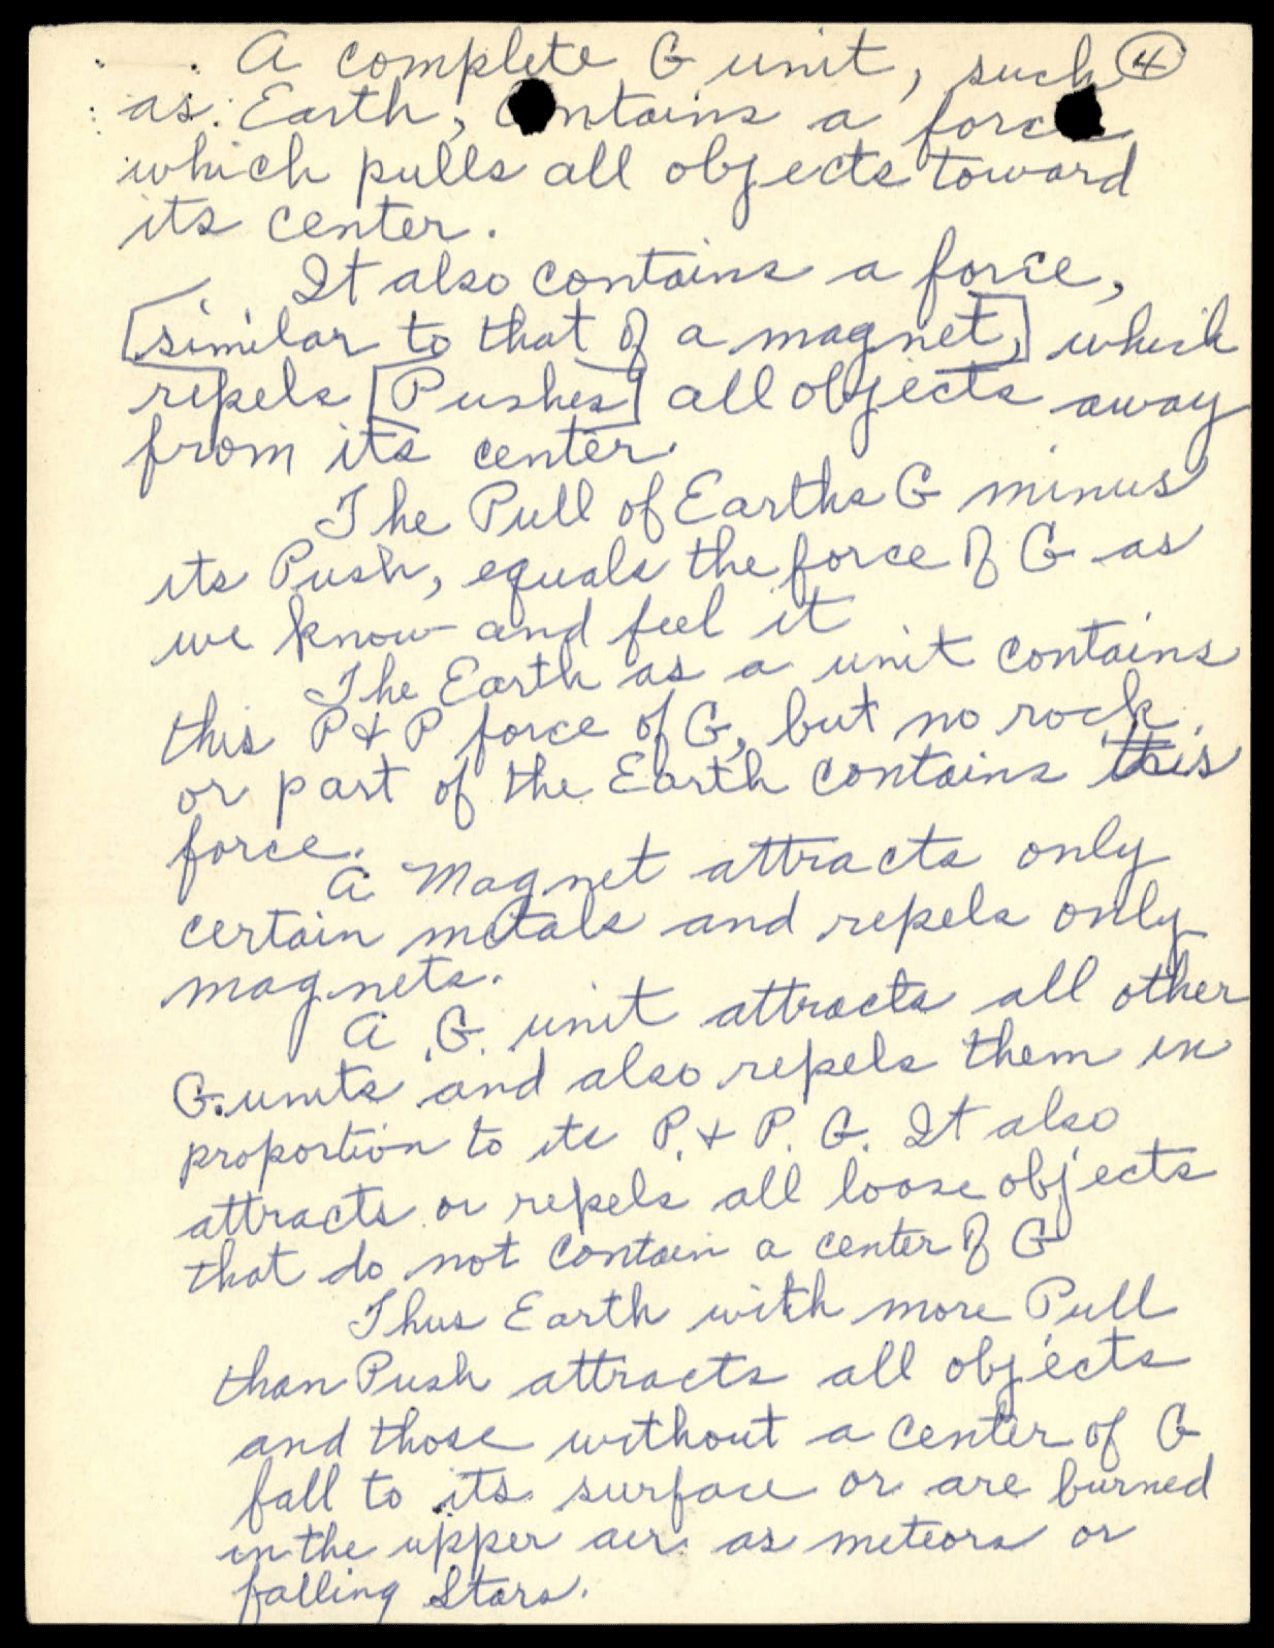 A complete G unit, such ④
as Earth, contains a force
which pulls all objects toward
its center.
It also contains a force,
[similar to that of a magnet,] which
repels [Pushes] all objects away
from its center.
The Pull of Earths G minus
its Push, equals the force of G as
we know and feel it
The Earth as a unit contains
this P & P force of G, but no rock
or part of the Earth contains this
force.
A Magnet attracts only
certain metals and repels only
magnets.
A G. unit attracts all other
G. units and also repels them in
proportion to its P. & P. G. It also
attracts or repels all loose objects
that do not contain a center of G
Thus Earth with more Pull
than Push attracts all objects
and those without a center of G
fall to its surface or are burned
in the upper air as meteors or
falling Stars.